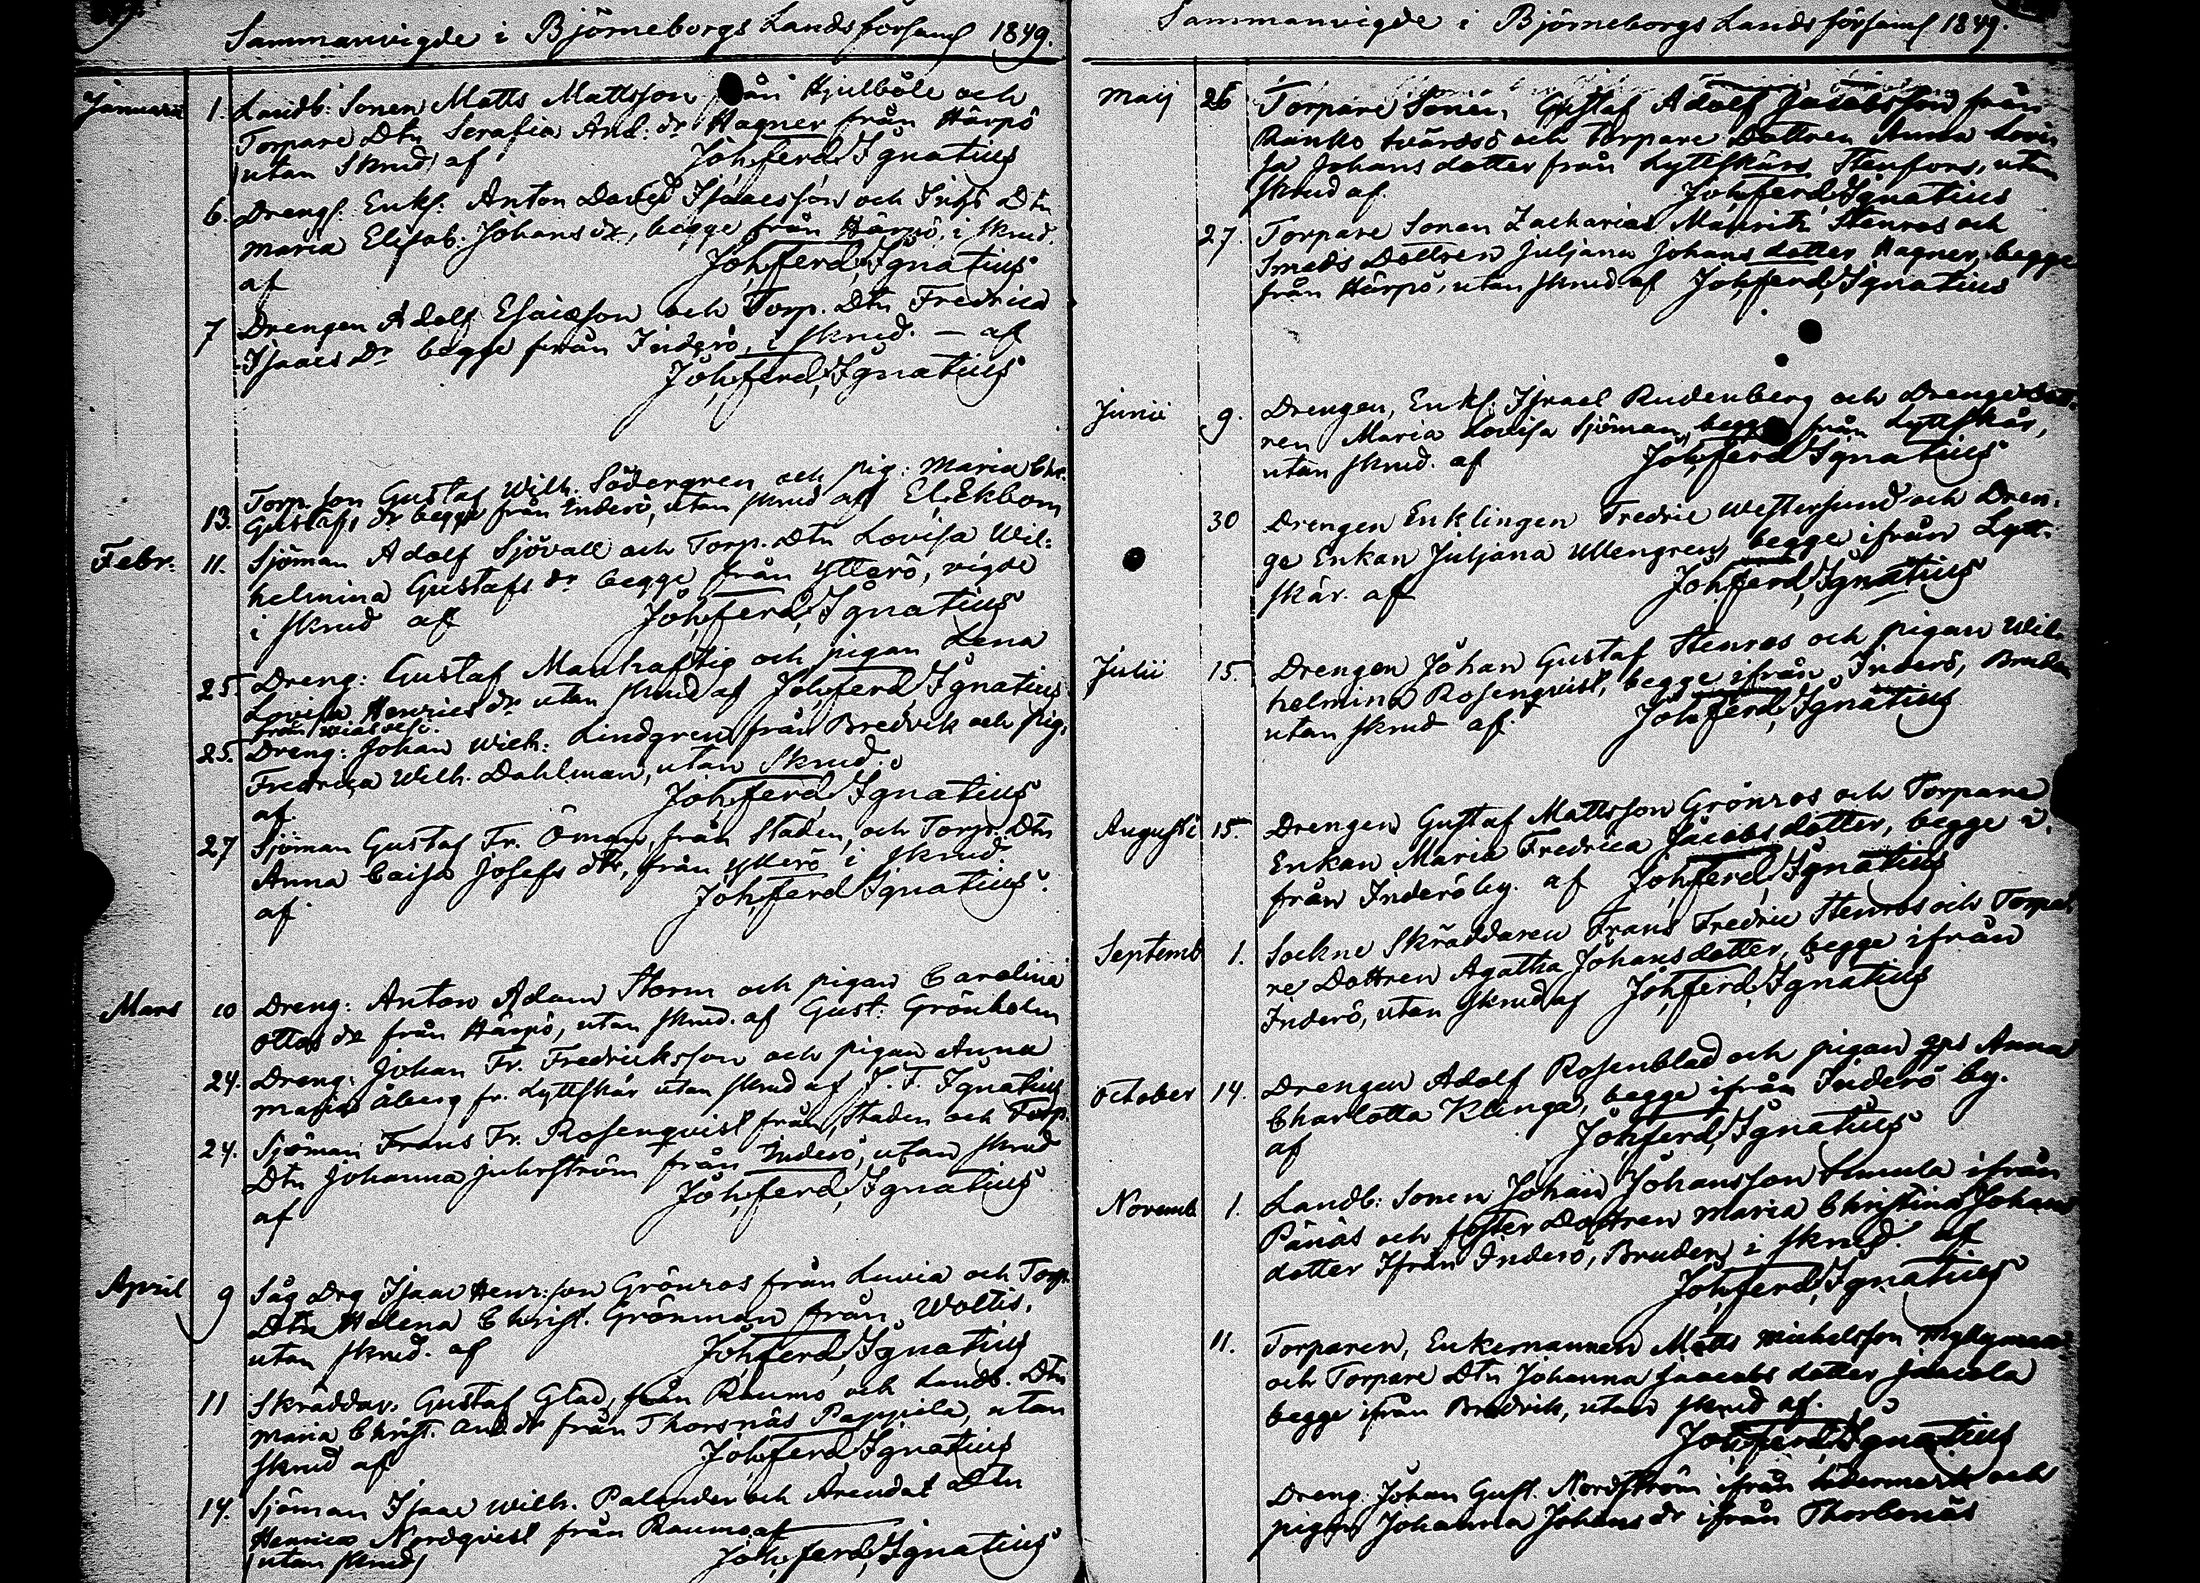 Sammanvigde i Björneborgs Landsförsaml 1849.
Januarii 1. Landb: Sonen Matts Mattsson från Hjulböle och
Torpare Dtn Serafia And: dr Hagner från Härpö
utan Skrud af Joh, ferd, Ignatius
6. Drengs. Enkl: Anton David Isaacsson och Inhs Dtn
Maria Elisab: Johans dr, begge från Härpö, i skrud.
af Joh, ferd, Ignatius
7 Drengen Adolf Esaiasson och Torp. Dtn Fredrica
Isaacs Dr begge från Inderö, i skrud. — af
Joh, ferd, Ignatius
13. Torp. son Gustaf Wilh. Södergren och pig: Maria Chr.
Gustafs dr begge från Inderö, utan skrud af El. Ekbom
Febr. 11. Sjöman Adolf Sjövall och Torp. Dtn Lovisa Wil:
helmina Gustafs dr begge från ytterö, vigde
i skrud af Joh, ferd, Ignatius
25. Dreng: Gustaf Manhaftig och pigan Lena
Lovisa Henrics dr utan skrud af Joh, ferd, Ignatius
från
25. Dreng: Johan Wilh: Lindgren från Bredvik och pig.
Fredrica Wilh. Dahlman, utan Skrud.
af Joh, ferd, Ignatius
27 Sjöman Gustaf Fr. Öman, från Staden, och Torp. Dtn
Anna Caisa Josefs dtr, från ytterö i skrud.
af Joh, ferd, Ignatius.
Mars 10 Dreng: Anton Adam Storm och pigan Carolina
Ottos dr från Härpö, utan skrud. af Gust: Grönholm
24. Dreng: Johan Fr. Fredricksson och pigan Anna
Maria Åberg fr. Lyttskär utan skrud af J. F. Ignatius
24. Sjöman Frans Fr. Rosenqvist från Staden och Torp.
Dtn Johanna Juhrström från Inderö, utan skrud
af Joh, ferd, Ignatius
April 9 Såg Drg Isaac Henr:son Grönros från Luvia och Torp.
Dtn Helena Christ. Grönman från Woltis,
utan skrud. af Joh, ferd, Ignatius
11 Skräddar. Gustaf Glad, från Raumo och Landb. Dtn
Maria Christ. And: dr från Thorsnäs Pappila, utan
skrud af Joh, ferd, Ignatius
14. Sjöman Isaac Wilh. Palander och Arendat Dtn
Henrica Nordqvist från Raumo af
utan skrud Joh, ferd, Ignatius
Sammanvigde i Björneborgs Landsförsaml 1849.
Maij 26 Torpare Sonen, Gustaf Adolf Jacobsson från
Ranko tvärdsö och Torpare Dottren Anna Lovi
sa Johans dotter från Lyttskärs Stenfors, utan
skrud af. Joh, ferd, Ignatius
27. Torpare Sonen Zacharias Mauritz Stenros och
Smeds Dottren Juljana Johans dotter Hagner, begge
från Härpö, utan skrud af Joh, ferd, Ignatius
Junii 9. Drengen, Enkl: Israel Rudenberg och Drenge Dott-
ren Maria Lovisa Sjöman, begge från Lyttskär,
utan skrud. af Joh, ferd, Ignatius
30 Drengen Enklingen Fredric Westerlund och Dren:
ge Enkan Juljana Ullengren, begge ifrån Lytt-
skär. af Joh, ferd, Ignatius
Julii 15. Drengen Johan Gustaf Stenros och pigan Wil-
helmina Rosenqvist, begge ifrån Inderö, Bruden
utan skrud af. Joh, ferd, Ignatius
Augusti 15. Drengen Gustaf Mattsson Grönros och Torpare
Enkan Maria Fredrica Jacobs dotter, begge i
från Inderö by. af Joh, ferd, Ignatius
Septemb 1. Sockne Skräddaren Frans Fredric Stenros och Torpa
re Dottren Agatha Johans dotter, begge ifrån
Inderö, utan skrud af Joh, ferd, Ignatius
October 14. Drengen Adolf Rosenblad och pigan Anna
Charlotta Klinga, begge ifrån Inderö by.
af Joh, ferd, Ignatius
Novemb 1. Landb: Sonen Johan Johansson ifrån
Pånäs och foster Dottren Maria Christina Johans
dotter Ifrån Inderö, Bruden i skrud. af
Joh, ferd, Ignatius
11. Torparen, Enkemannen Matts Michelsson
och Torpare Dtn Johanna Jaacobs dotter Jaacola
begge ifrån Bredvik, utan skrud af.
Joh, ferd, Ignatius
Dreng. Johan Gust. Nordström ifrån Södermark och
pigan Johanna Johans dr ifrån Thorbonäs